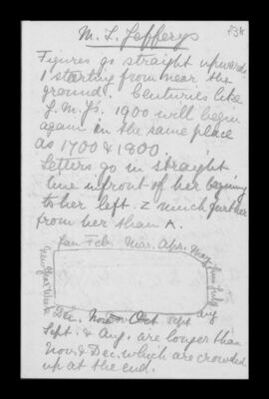 M. L. Jefferys
Figures go straight upwards
1 starting from near the
ground. Centuries like
J.M.J's. 1900 will begin
again in the same place
as 1700 & 1800.
Letters go in straight
line in front of her beginning
to her left. Z much further
from her than A.
Jan. Feb. Mar. Apr. May June July
Dec. Nov. Oct. Sept. Aug
Sept. & Aug. are longer than
Nov. & Dec. which are crowded
up at the end.